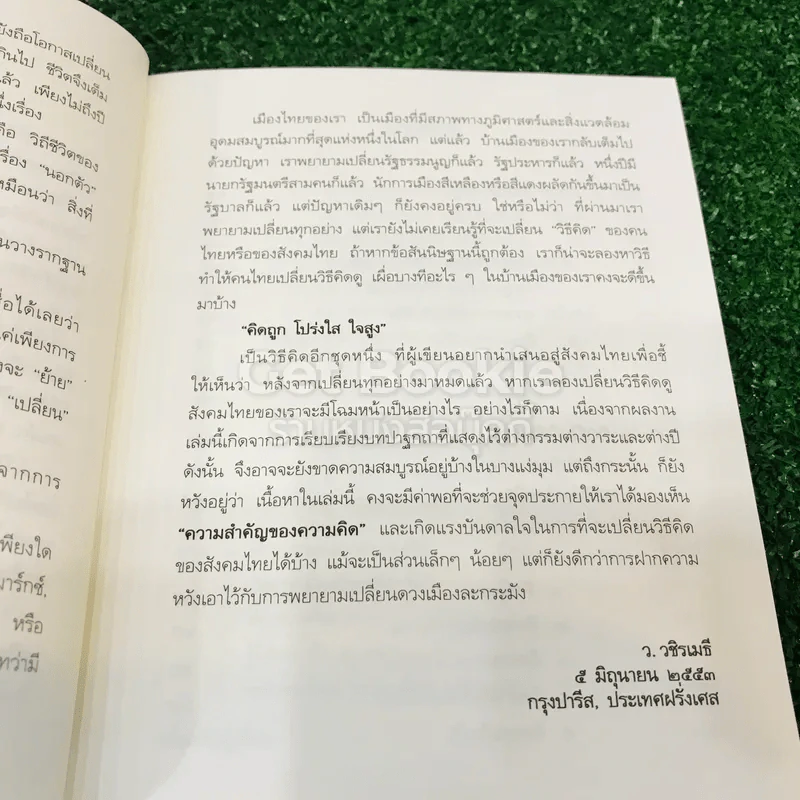 ยังถือโอกาสเปลี่ยน
กินไป ชีวิตจึงเต็ม
แล้ว เพียงไม่ถึงปี
นึ่งเรื่อง
คือ วิถีชีวิตของ
เรื่อง “นอกตัว”
หมือนว่า สิ่งที่
นวางรากฐาน
ชื่อได้เลยว่า
ค่เพียงการ
งจะ “ย้าย”
“เปลี่ยน”
จากการ
เพียงใด
มาร์กซ์,
หรือ
ทว่ามี
เมืองไทยของเรา เป็นเมืองที่มีสภาพทางภูมิศาสตร์และสิ่งแวดล้อม
อุดมสมบูรณ์มากที่สุดแห่งหนึ่งในโลก แต่แล้ว บ้านเมืองของเรากลับเต็มไป
ด้วยปัญหา เราพยายามเปลี่ยนรัฐธรรมนูญก็แล้ว รัฐประหารก็แล้ว หนึ่งปีมี
นายกรัฐมนตรีสามคนก็แล้ว นักการเมืองสีเหลืองหรือสีแดงผลัดกันขึ้นมาเป็น
รัฐบาลก็แล้ว แต่ปัญหาเดิมๆ ก็ยังคงอยู่ครบ ใช่หรือไม่ว่า ที่ผ่านมาเรา
พยายามเปลี่ยนทุกอย่าง แต่เรายังไม่เคยเรียนรู้ที่จะเปลี่ยน “วิธีคิด” ของคน
ไทยหรือของสังคมไทย ถ้าหากข้อสันนิษฐานนี้ถูกต้อง เราก็น่าจะลองหาวิธี
ทำให้คนไทยเปลี่ยนวิธีคิดดู เผื่อบางทีอะไร ๆ ในบ้านเมืองของเราคงจะดีขึ้น
มาบ้าง
“คิดถูก โปร่งใส ใจสูง”
เป็นวิธีคิดอีกชุดหนึ่ง ที่ผู้เขียนอยากนำเสนอสู่สังคมไทยเพื่อชี้
ให้เห็นว่า หลังจากเปลี่ยนทุกอย่างมาหมดแล้ว หากเราลองเปลี่ยนวิธีคิดดู
สังคมไทยของเราจะมีโฉมหน้าเป็นอย่างไร อย่างไรก็ตาม เนื่องจากผลงาน
เล่มนี้เกิดจากการเรียบเรียงบทปาฐกถาที่แสดงไว้ต่างกรรมต่างวาระและต่างปี
ดังนั้น จึงอาจจะยังขาดความสมบูรณ์อยู่บ้างในบางแง่มุม แต่ถึงกระนั้น ก็ยัง
หวังอยู่ว่า เนื้อหาในเล่มนี้ คงจะมีค่าพอที่จะช่วยจุดประกายให้เราได้มองเห็น
“ความสำคัญของความคิด” และเกิดแรงบันดาลใจในการที่จะเปลี่ยนวิธีคิด
ของสังคมไทยได้บ้าง แม้จะเป็นส่วนเล็กๆ น้อยๆ แต่ก็ยังดีกว่าการฝากความ
หวังเอาไว้กับการพยายามเปลี่ยนดวงเมืองละกระมัง
ว. วชิรเมธี
๕ มิถุนายน ๒๕๕๓
กรุงปารีส, ประเทศฝรั่งเศส
Get Bookie